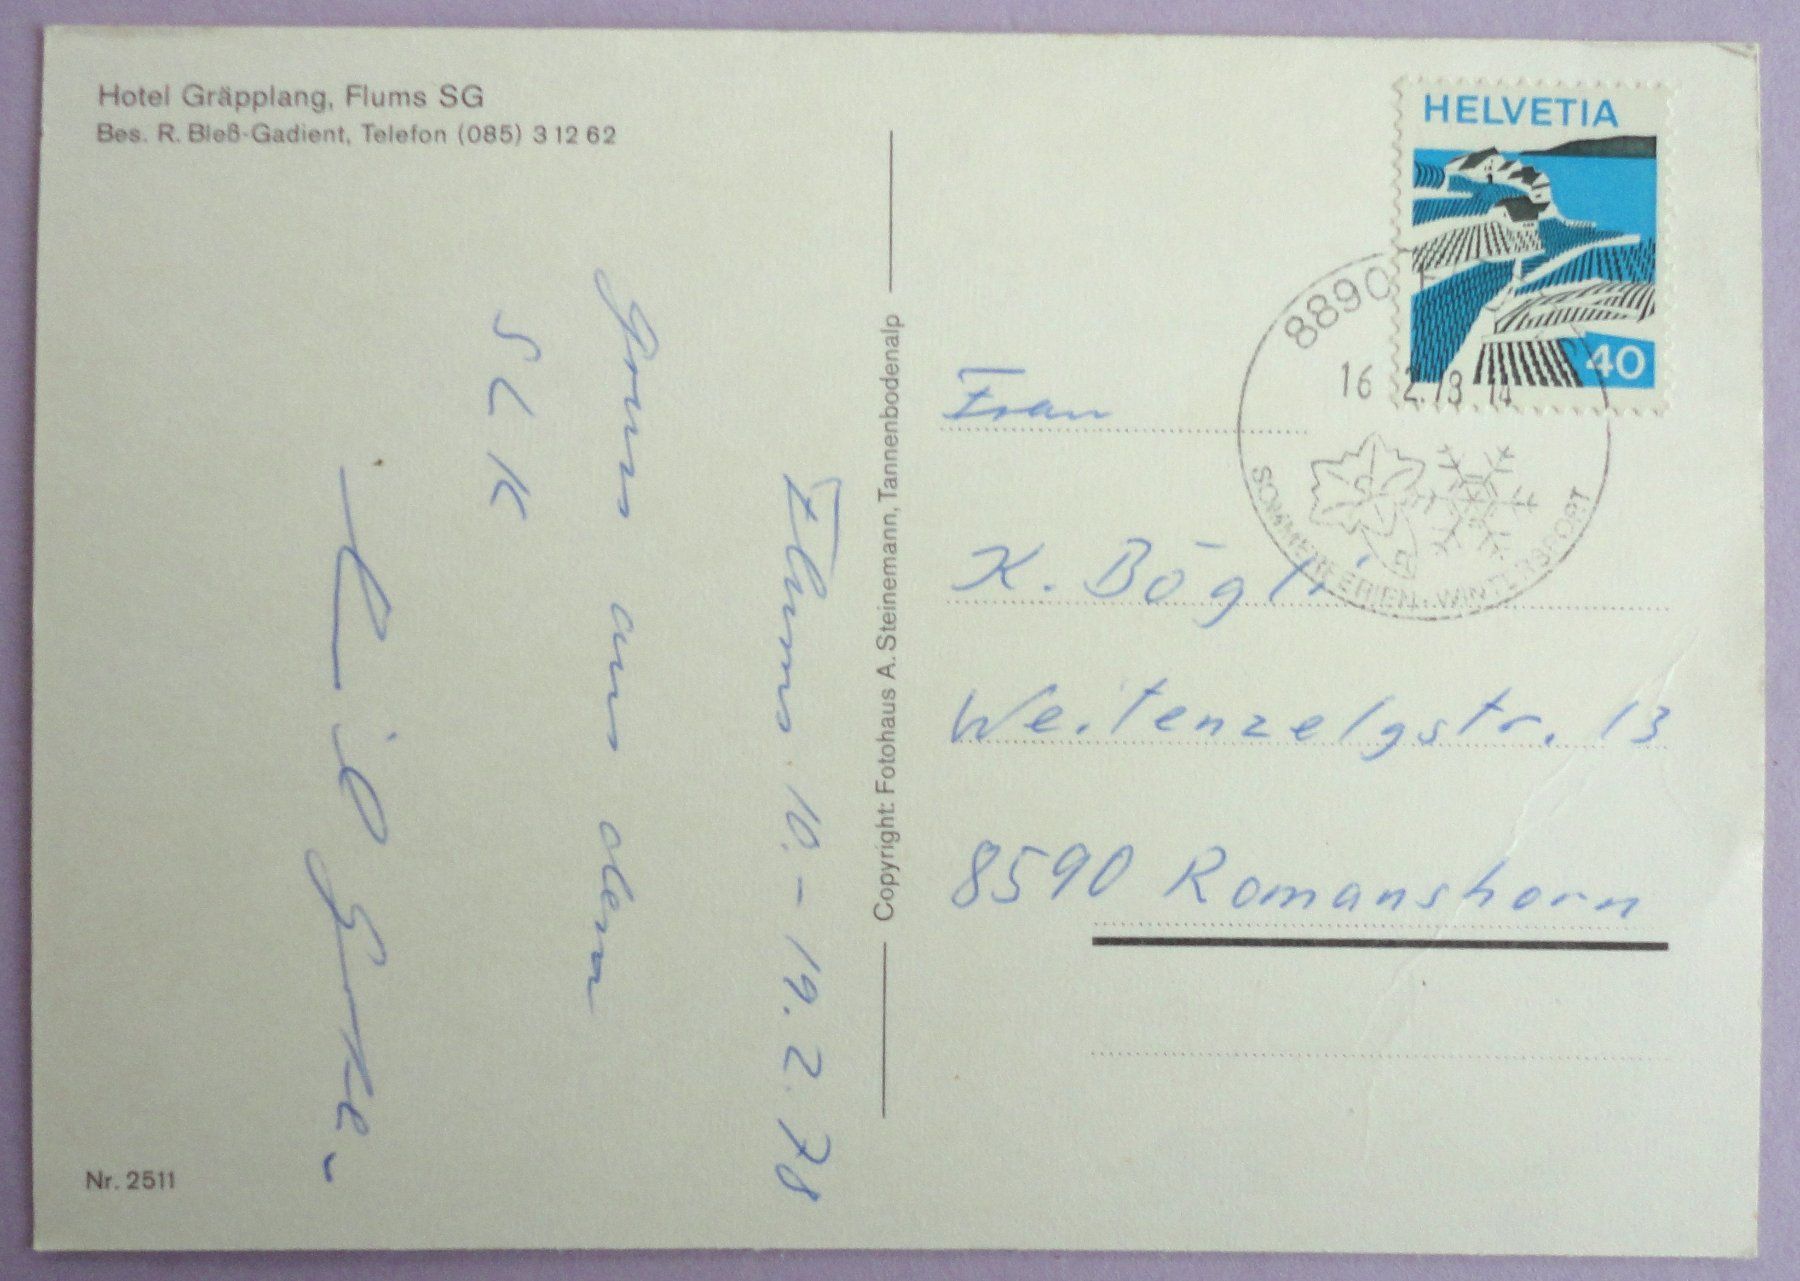 Hotel Gräpplang, Flums SG
Bes. R. Bleß-Gadient, Telefon (085) 3 12 62
Flums 10. - 19. 2. 78
Gruss aus dem
SLK
Nr. 2511
Copyright: Fotohaus A. Steinemann, Tannenbodenalp
HELVETIA
40
8890
16 2.78 14
SOMMERFERIEN · WINTERSPORT
Frau
K. Bögli
Weitenzelgstr. 13
8590 Romanshorn